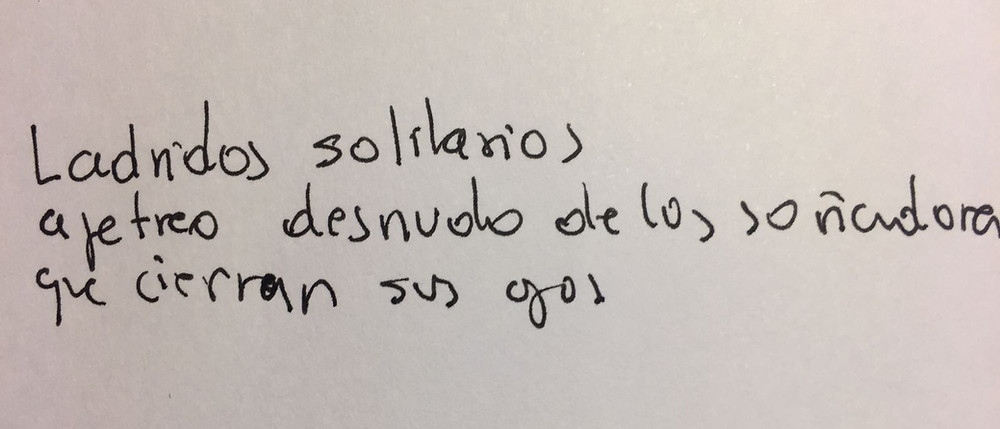 Ladridos solitarios
ajetreo desnudo de los soñadora
que cierran sus ojos